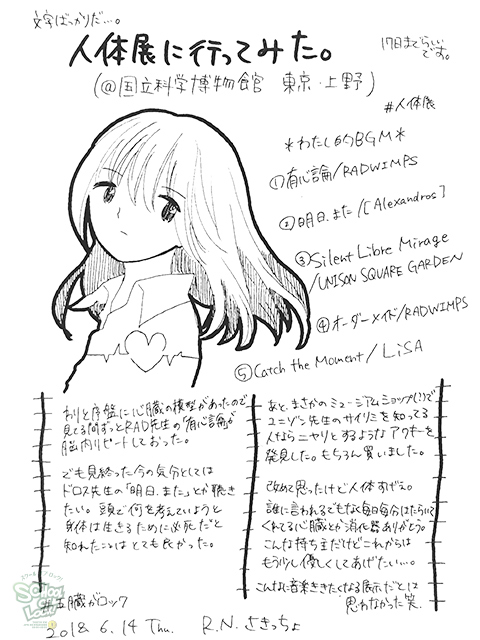 文字ばっかりだ…。
人体展に行ってみた。
17日までらしいです。
(@国立科学博物館 東京・上野)
#人体展
*わたし的BGM*
①有心論/RADWIMPS
②明日、また/[Alexandros]
③Silent Libre Mirage
/UNISON SQUARE GARDEN
④オーダーメイド/RADWIMPS
⑤Catch the Moment/LiSA
わりと序盤に心臓の模型があったので
見てる間ずっとRAD先生の「有心論」が
脳内リピートしておった。
でも見終った今の気分としては
ドロス先生の「明日、また」とか聴き
たい。頭で何を考えていようと
身体は生きるために必死だと
知れたことはとても良かった。
あと、まさかのミュージアムショップ(!)で
ユニゾン先生のサイリミを知ってる
人ならニヤリとするようなアクキーを
発見した。もちろん買いました。
改めて思ったけど人体すげえ。
誰に言われるでもなく毎日毎分はたらいて
くれてる心臓とか消化器ありがとう。
こんな持ち主だけどこれからは
もう少し優しくしてあげたい…。
こんなに音楽ききたくなる展示だとは
思わなかった笑
#五臓がロック
SCHOOL OF LOCK!
2018. 6. 14 Thu. R.N. さきっちょ